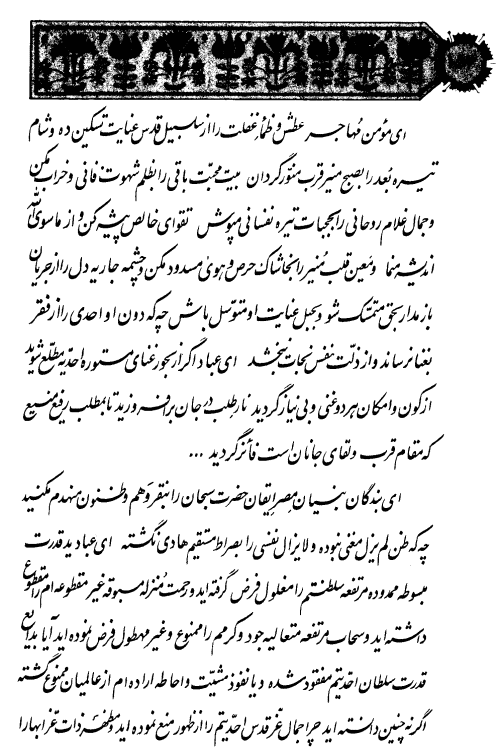 ای مؤمن مهاجر عطش و ظماء غفلت را از سلسبیل قدس عنایت تسکین ده و شام
تیره بُعد را بصبح منیر قرب منوّر گردان بیت محبّت باقی را بظلم شهوت فانی و خراب مکن
و جمال غلام روحانی را بحجبات تیره نفسانی مپوش تقوای خالص پیشه کن و از ما سوی الله
اندیشه منما و معین قلب مُنیر را بخاشاک حرص و هوی مسدود مکن و چشمه جاریه دل را از جریان
باز مدار بحق متمسّک شو و بحبل عنایت او متوسّل باش چه که دون او احدی را از فقر
بغنا نرساند و از ذلّت نفس نجات نبخشد ای عباد اگر از بحور غنای مستوره احدیّه مطّلع شوید
از کون و امکان هر دو غنی و بی نیاز گردید نار طلب در جان برافروزید تا بمطلب رفیع منیع
که مقام قرب و لقای جانان است فائز گردید ...
ای بندگان بنیان مصر ایقان حضرت سبحان را بنقر وهم و ظنون منهدم مکنید
چه که ظن لم یزل مغنی نبوده و لا یزال نفسی را بصراط مستقیم هادی نگشته ای عباد ید قدرت
مبسوطه ممدوده مرتفعه سلطنتم را مغلول فرض گرفته اید و رحمت مُنزله مسبوقه غیر مقطوعه ام را مقطوع
داشته اید و سحاب مرتفعه متعالیه جود و کرمم را ممنوع و غیر مهطول فرض نموده اید آیا بدایع
قدرت سلطان احدیّتم مفقود شده و یا نفوذ مشیّت و احاطه اراده ام از عالمیان ممنوع گشته
اگر نه چنین دانسته اید چرا جمال عزّ قدس احدیّتم را از ظهور منع نموده اید و مظهر ذات عزّ ابها را